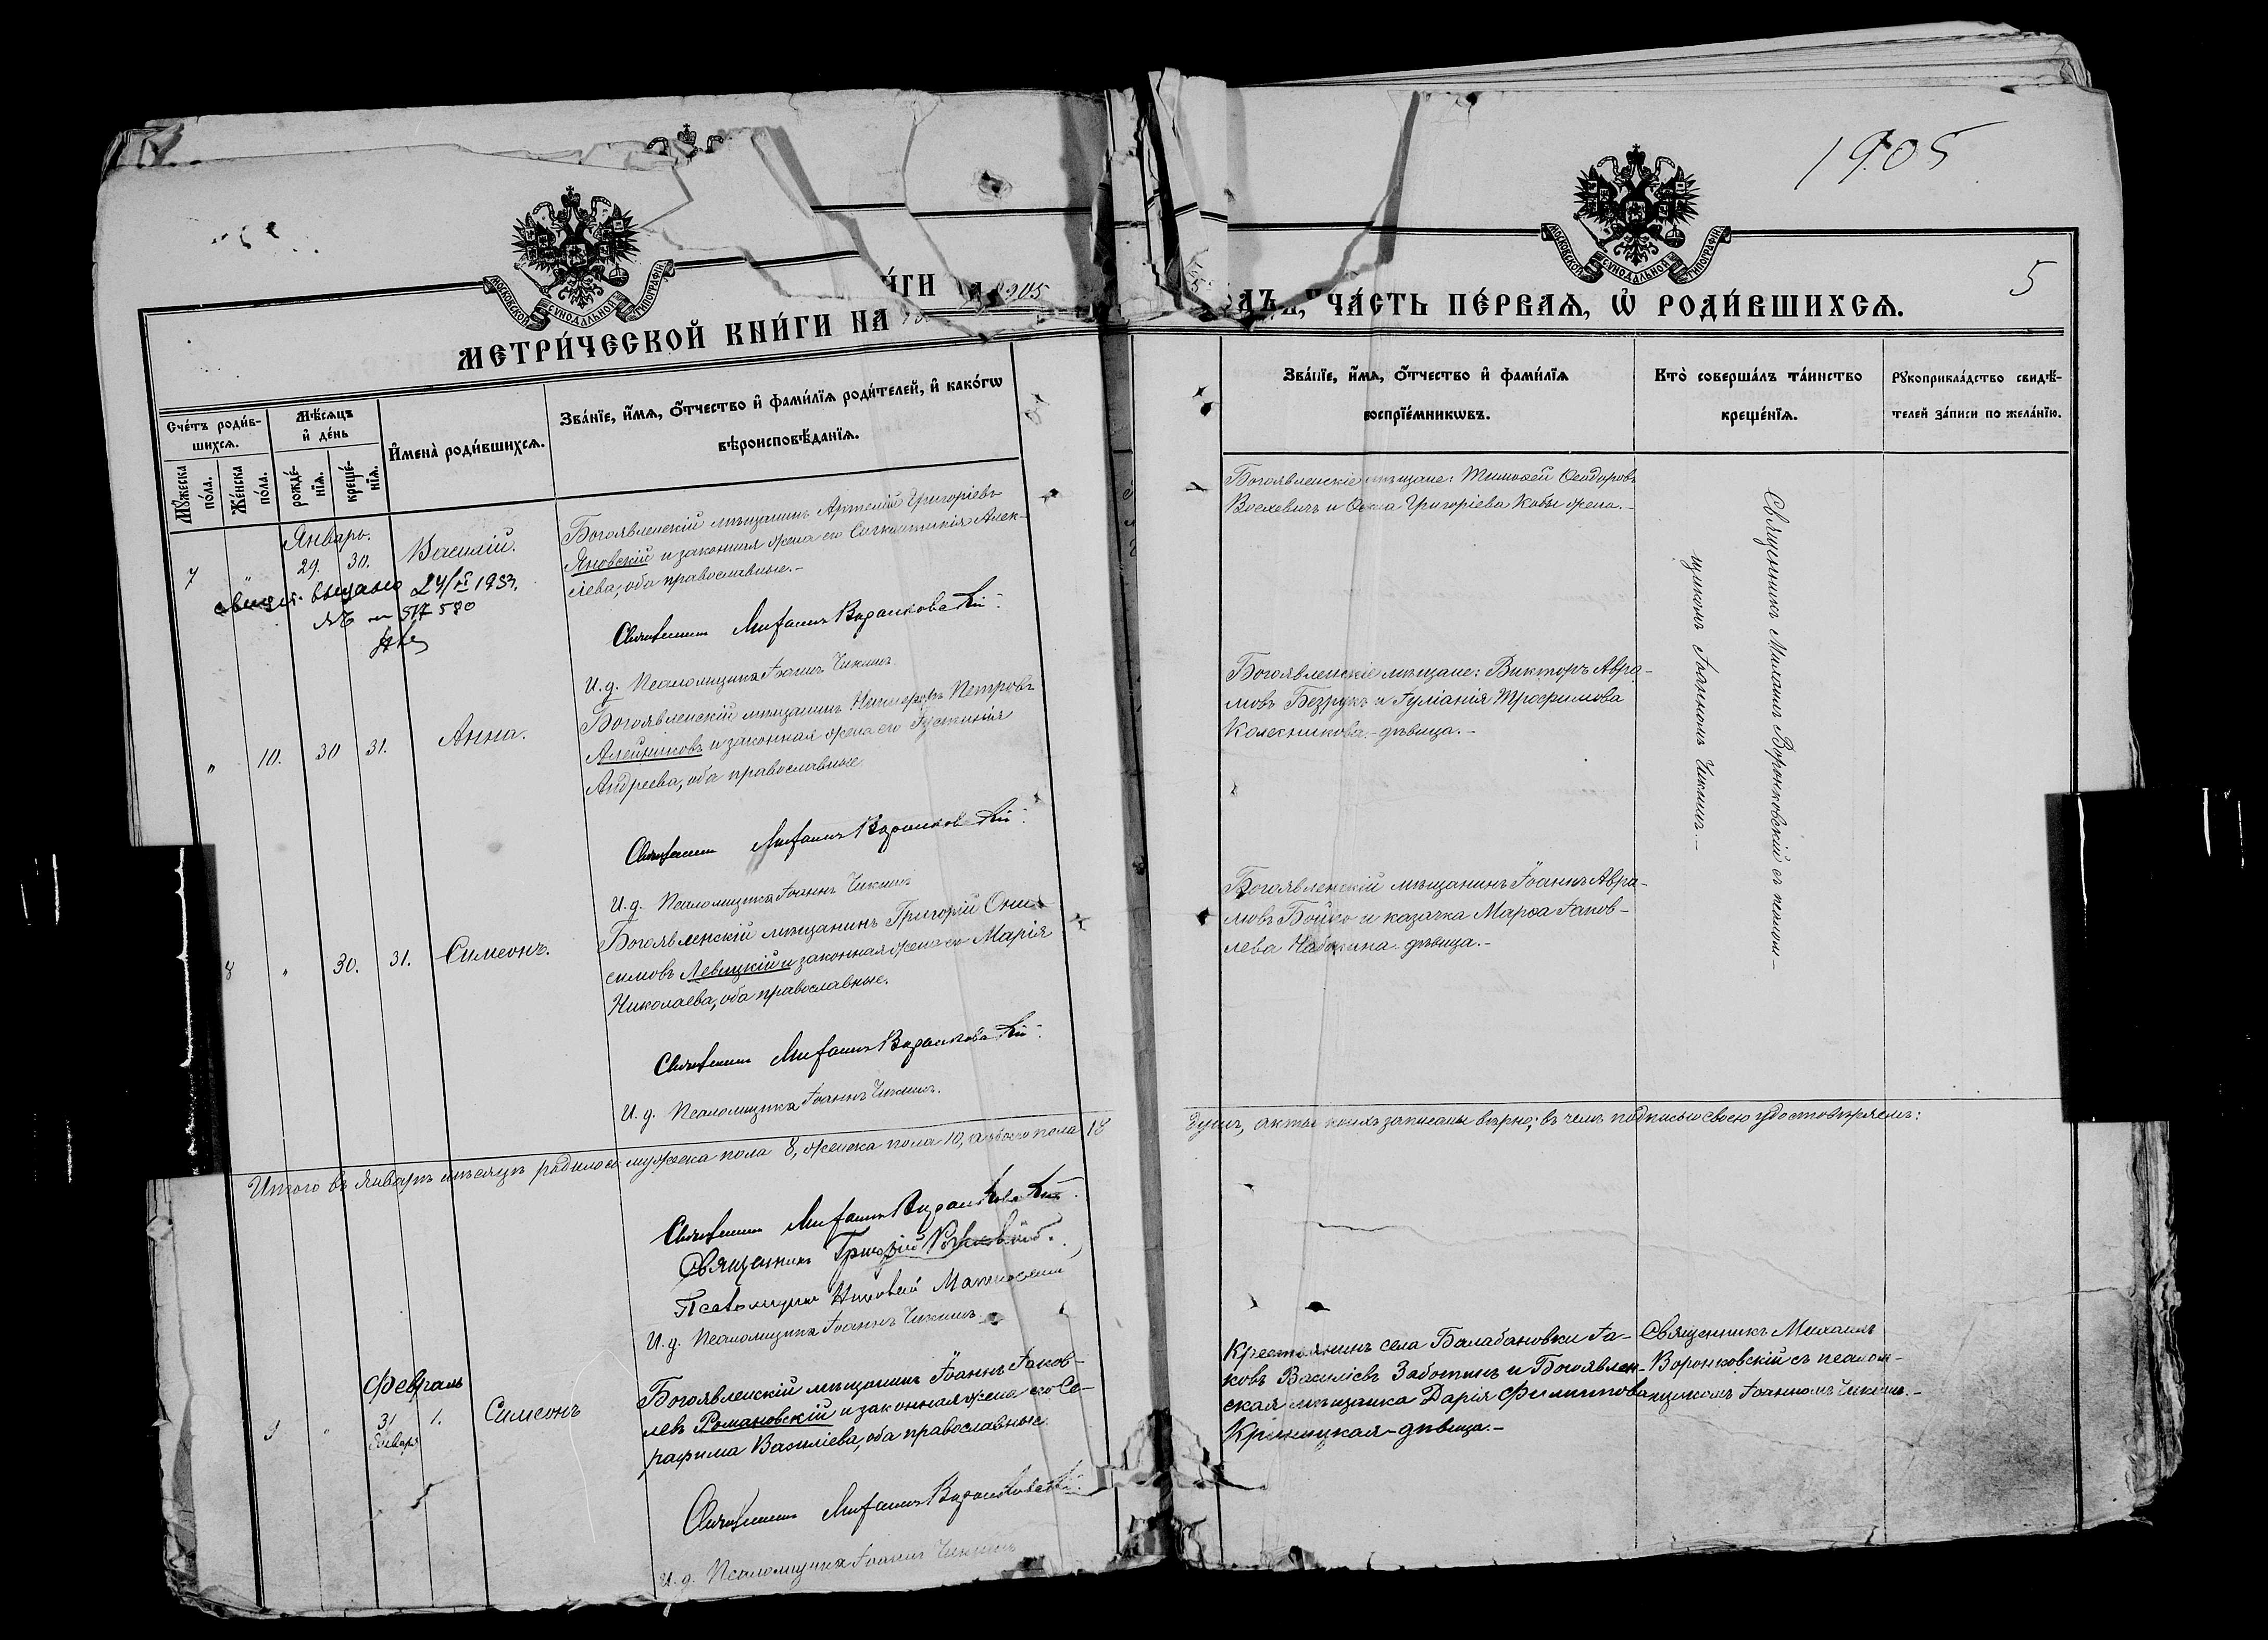 1905
5
МОСКОВСКОЙ СУНОДАЛЬНОЙ ТИПОГРАФІИ
МОСКОВСКОЙ СУНОДАЛЬНОЙ ТИПОГРАФІИ
И́ГИ 1905
МЕТРИ́ЧЕСКОЙ КНИ́ГИ НА
ДЪ, ЧА́СТЬ ПЕ́РВАѦ, Ѡ҆ РОДИ́ВШИХСѦ.
Сче́тъ роди́в-
шихсѧ.
Мꙋ́жеска по́ла.
Же́нска по́ла.
Мѣ́сѧцъ
и҆ де́нь
рожде́-
нїѧ.
креще́-
нїѧ.
И҆мена̀ роди́вшихсѧ.
Зва́нїе, и҆́мѧ, ѻ҆́тчество и҆ фами́лїѧ роди́телей, и҆ како́гѡ
вѣроисповѣ́данїѧ.
Зва́нїе, и҆́мѧ, ѻ҆́тчество и҆ фами́лїѧ
воспрїе́мникѡвъ.
Кто̀ соверша́лъ та́инство
креще́нїѧ.
Рꙋкоприкла́дство свидѣ́-
телей за́писи по жела́нїю.
Январь.
7 " 29. 30. Василій.
Богоявленскій мѣщанинъ Артемій Григоріевъ
Яновскій и законная жена его Алек-
сіева, оба православные.-
выдано 24/ 1933.
Священникъ Михаилъ Воронковскій.
И. д. Псаломщика Іоаннъ Чикинъ
Богоявленскіе мѣщане: Тимоѳей Ѳеодоровъ
и Григоріева Кобы жена.-
Священникъ Михаилъ Воронковскій съ псалом-
щикомъ Іоанномъ Чикинъ.-
" 10. 30 31. Анна.
Богоявленскій мѣщанинъ Никифоръ Петровъ
Алейниковъ и законная жена его Іустинія
Андреева, оба православные
Священникъ Михаилъ Воронковскій.
И. д. Псаломщика Іоаннъ Чикинъ
Богоявленскіе мѣщане: Викторъ Авра-
мовъ Безрукъ и Іуліанія Трофимова
Колесникова - дѣвица.-
8 " 30. 31. Симеонъ.
Богоявленскій мѣщанинъ Григорій Они-
симовъ Левицкій и законная жена его Марія
Николаева, оба православные.
Священникъ Михаилъ Воронковскій.
И. д. Псаломщика Іоаннъ Чикинъ.
Богоявленскій мѣщанинъ Іоаннъ Авра-
мовъ Бойко и казачка Марѳа Іаков-
лева дѣвица.-
Итого въ Январѣ мѣсяцѣ родилось мужеска пола 8, женска пола 10, а обоего пола 18
душъ, акты коихъ записаны вѣрно; въ чемъ подписью своею удостовѣряемъ:
Священникъ Михаилъ Воронковскій.
Священникъ Григорій
Псаломщикъ
И. д. Псаломщика Іоаннъ Чикинъ
Февраль
9 " 31 Января 1. Симеонъ
Богоявленскій мѣщанинъ Іоаннъ Іаков-
левъ Романовскій и законная жена его Се-
рафима Василіева, оба православные
Священникъ Михаилъ Воронковскій.
И. д. Псаломщика Іоаннъ Чикинъ
Крестьянинъ села Балабановки Іа-
ковъ Василіевъ Заботинъ и Богоявлен-
ская мѣщанка Дарія Филиппова
Криницкая - дѣвица.-
Священникъ Михаилъ
Воронковскій съ псалом-
щикомъ Іоанномъ Чикинъ.-